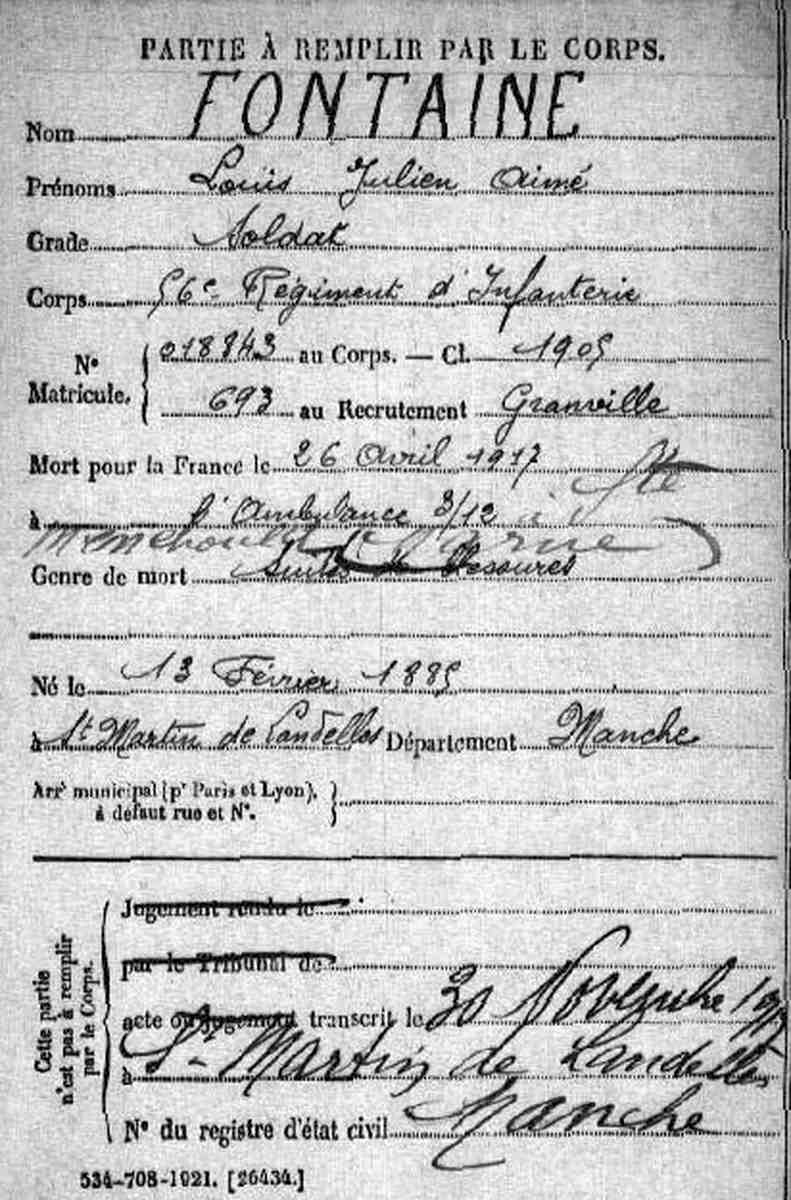 PARTIE À REMPLIR PAR LE CORPS.
Nom FONTAINE
Prénoms Louis Julien Aimé
Grade Soldat
Corps 56e Régiment d'Infanterie
N° Matricule. 018843 au Corps. — Cl. 1905
693 au Recrutement Granville
Mort pour la France le 26 Avril 1917
à l'Ambulance 3/12 à Ste
Menehould (Marne)
Genre de mort Suites de blessures
Né le 13 Février 1885
à St Martin de Landelles Département Manche
Arrt municipal (pr Paris et Lyon),
à défaut rue et N°.
Cette partie n'est pas à remplir par le Corps.
Jugement rendu le
par le Tribunal de
acte ou jugement transcrit le 30 Novembre
à St Martin de Landelles
N° du registre d'état civil Manche
534-708-1921. [26434.]